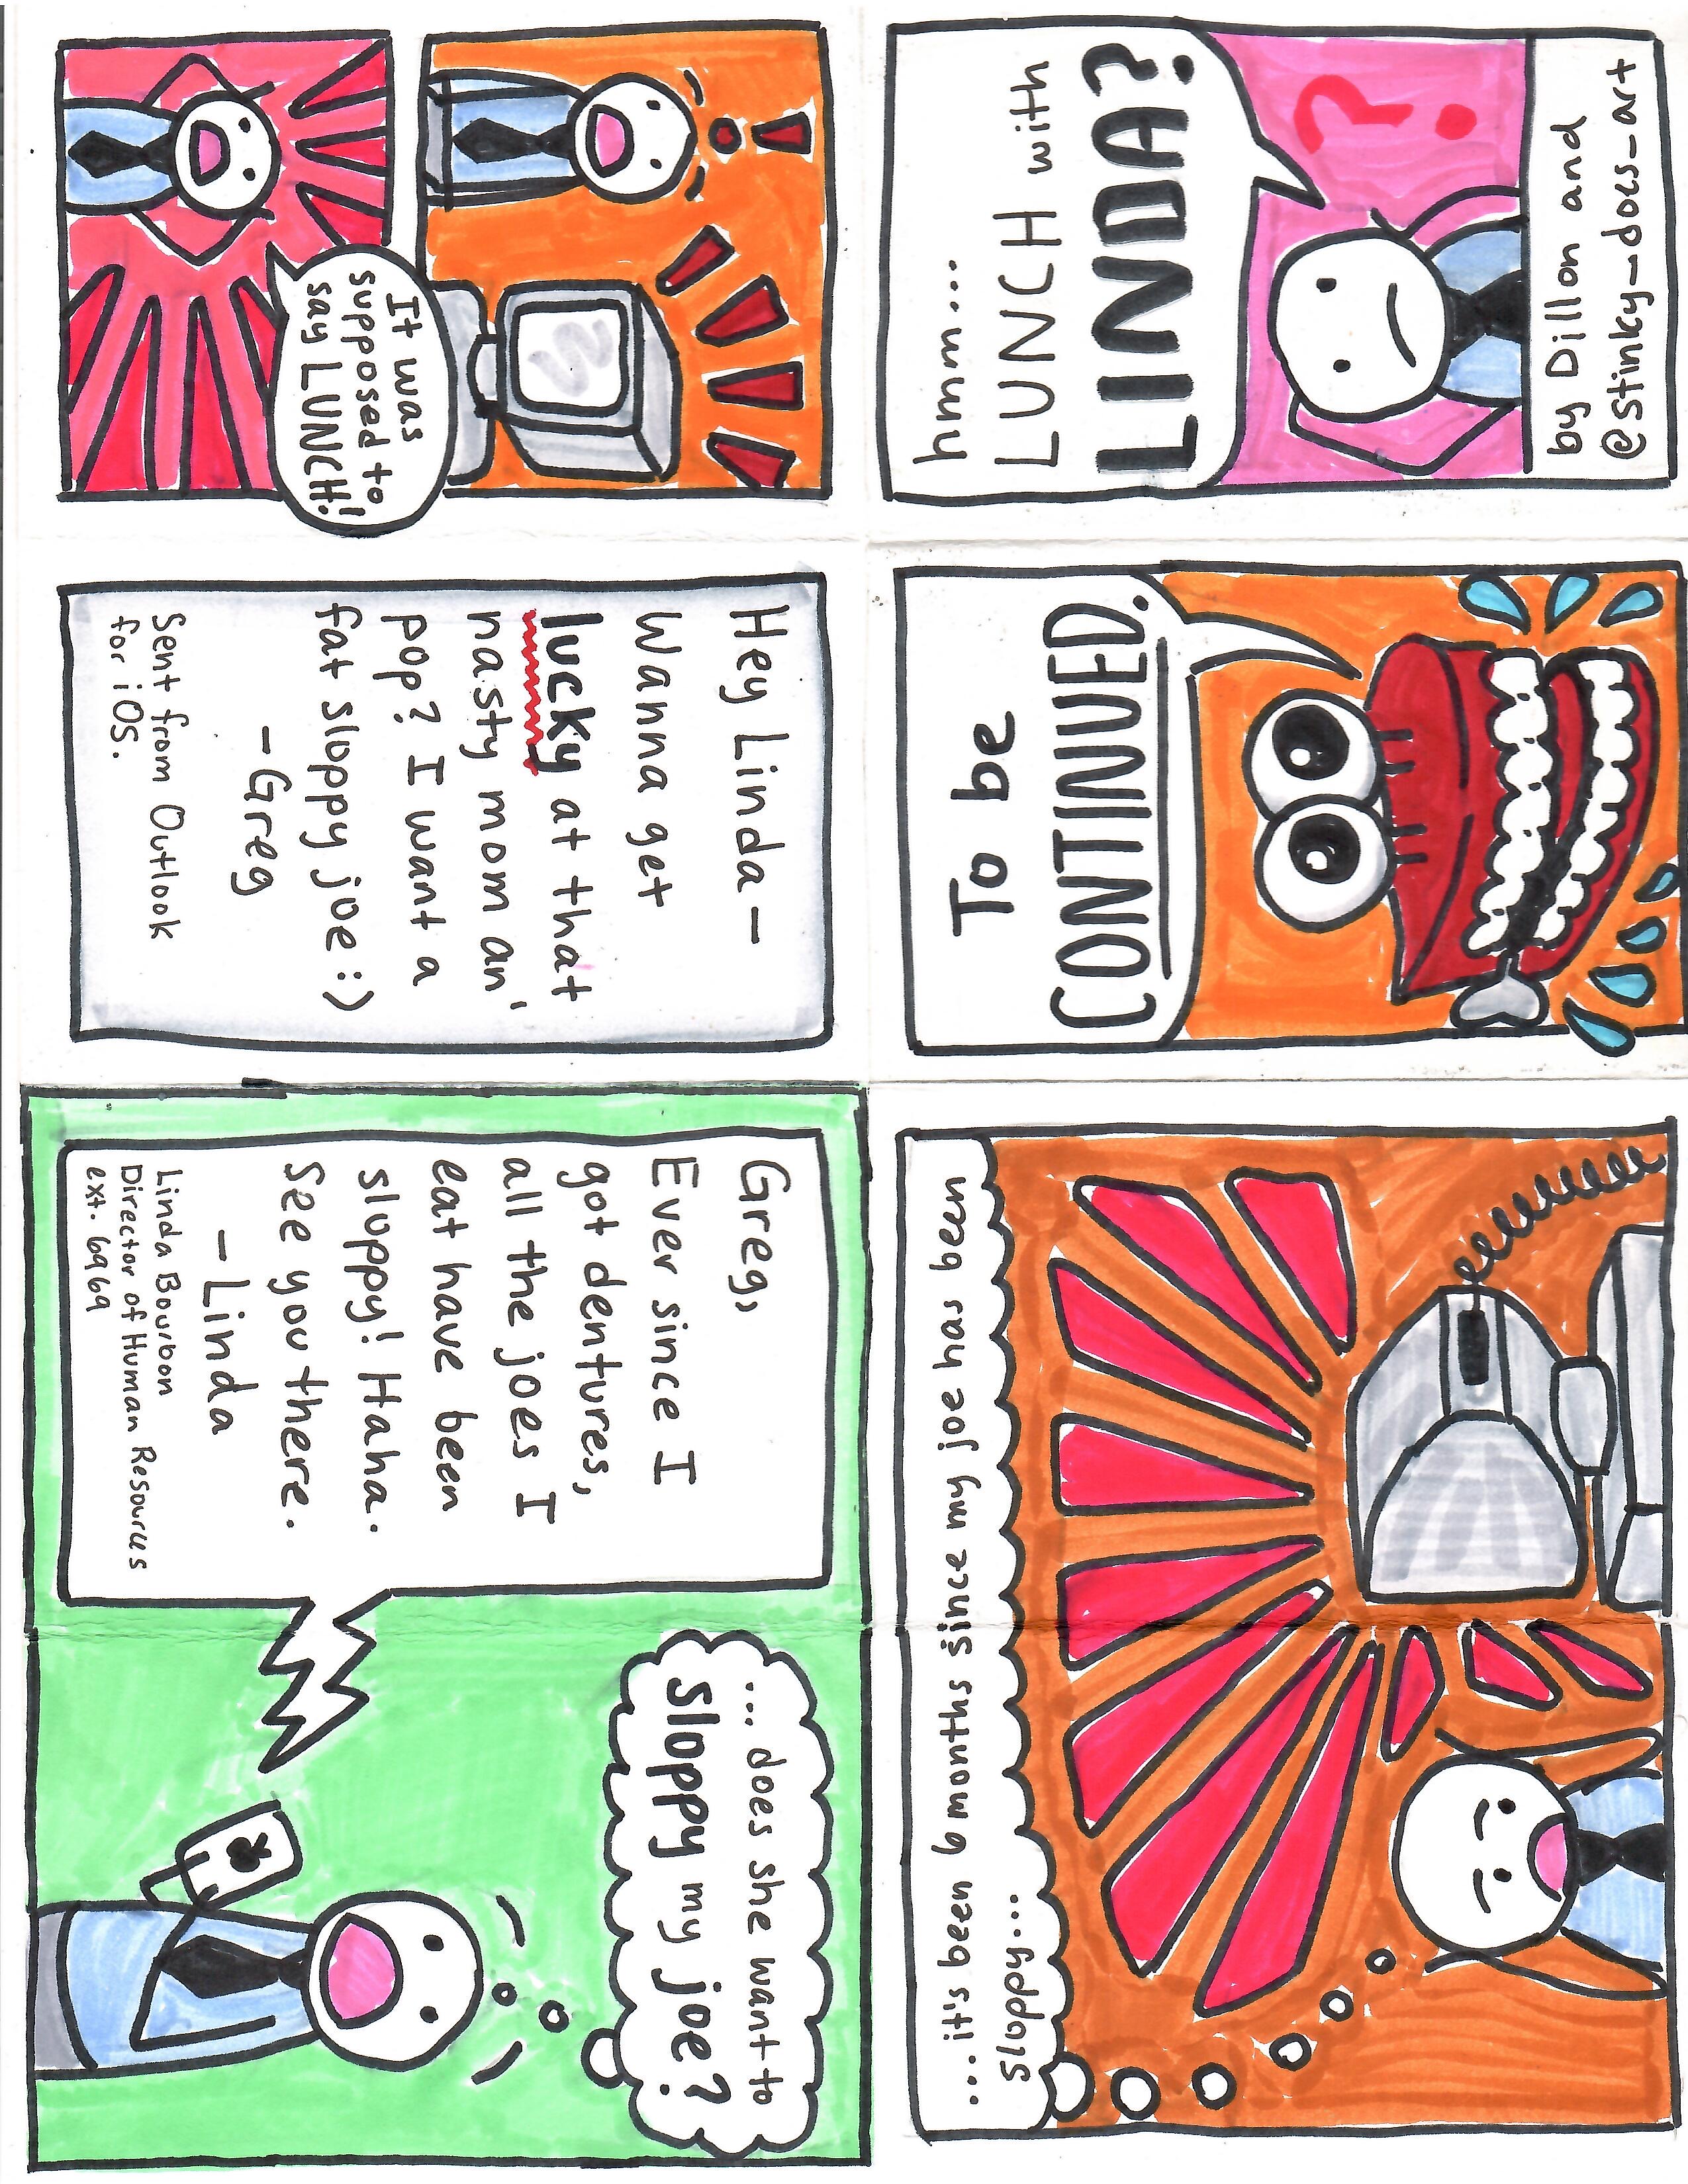 hmm...
LUNCH with
LINDA?
?
by Dillon and
@stinky_does_art
!
It was
supposed to
say LUNCH!
Hey Linda —
Wanna get
lucky at that
nasty mom an'
pop? I want a
fat sloppy joe :)
— Greg
Sent from Outlook
for iOS.
Greg,
Ever since I
got dentures,
all the joes I
eat have been
sloppy! Haha.
See you there.
— Linda
Linda Bourbon
Director of Human Resources
ext. 6969
...does she want to
sloppy my joe?
...it's been 6 months since my joe has been
sloppy...
To be
CONTINUED.